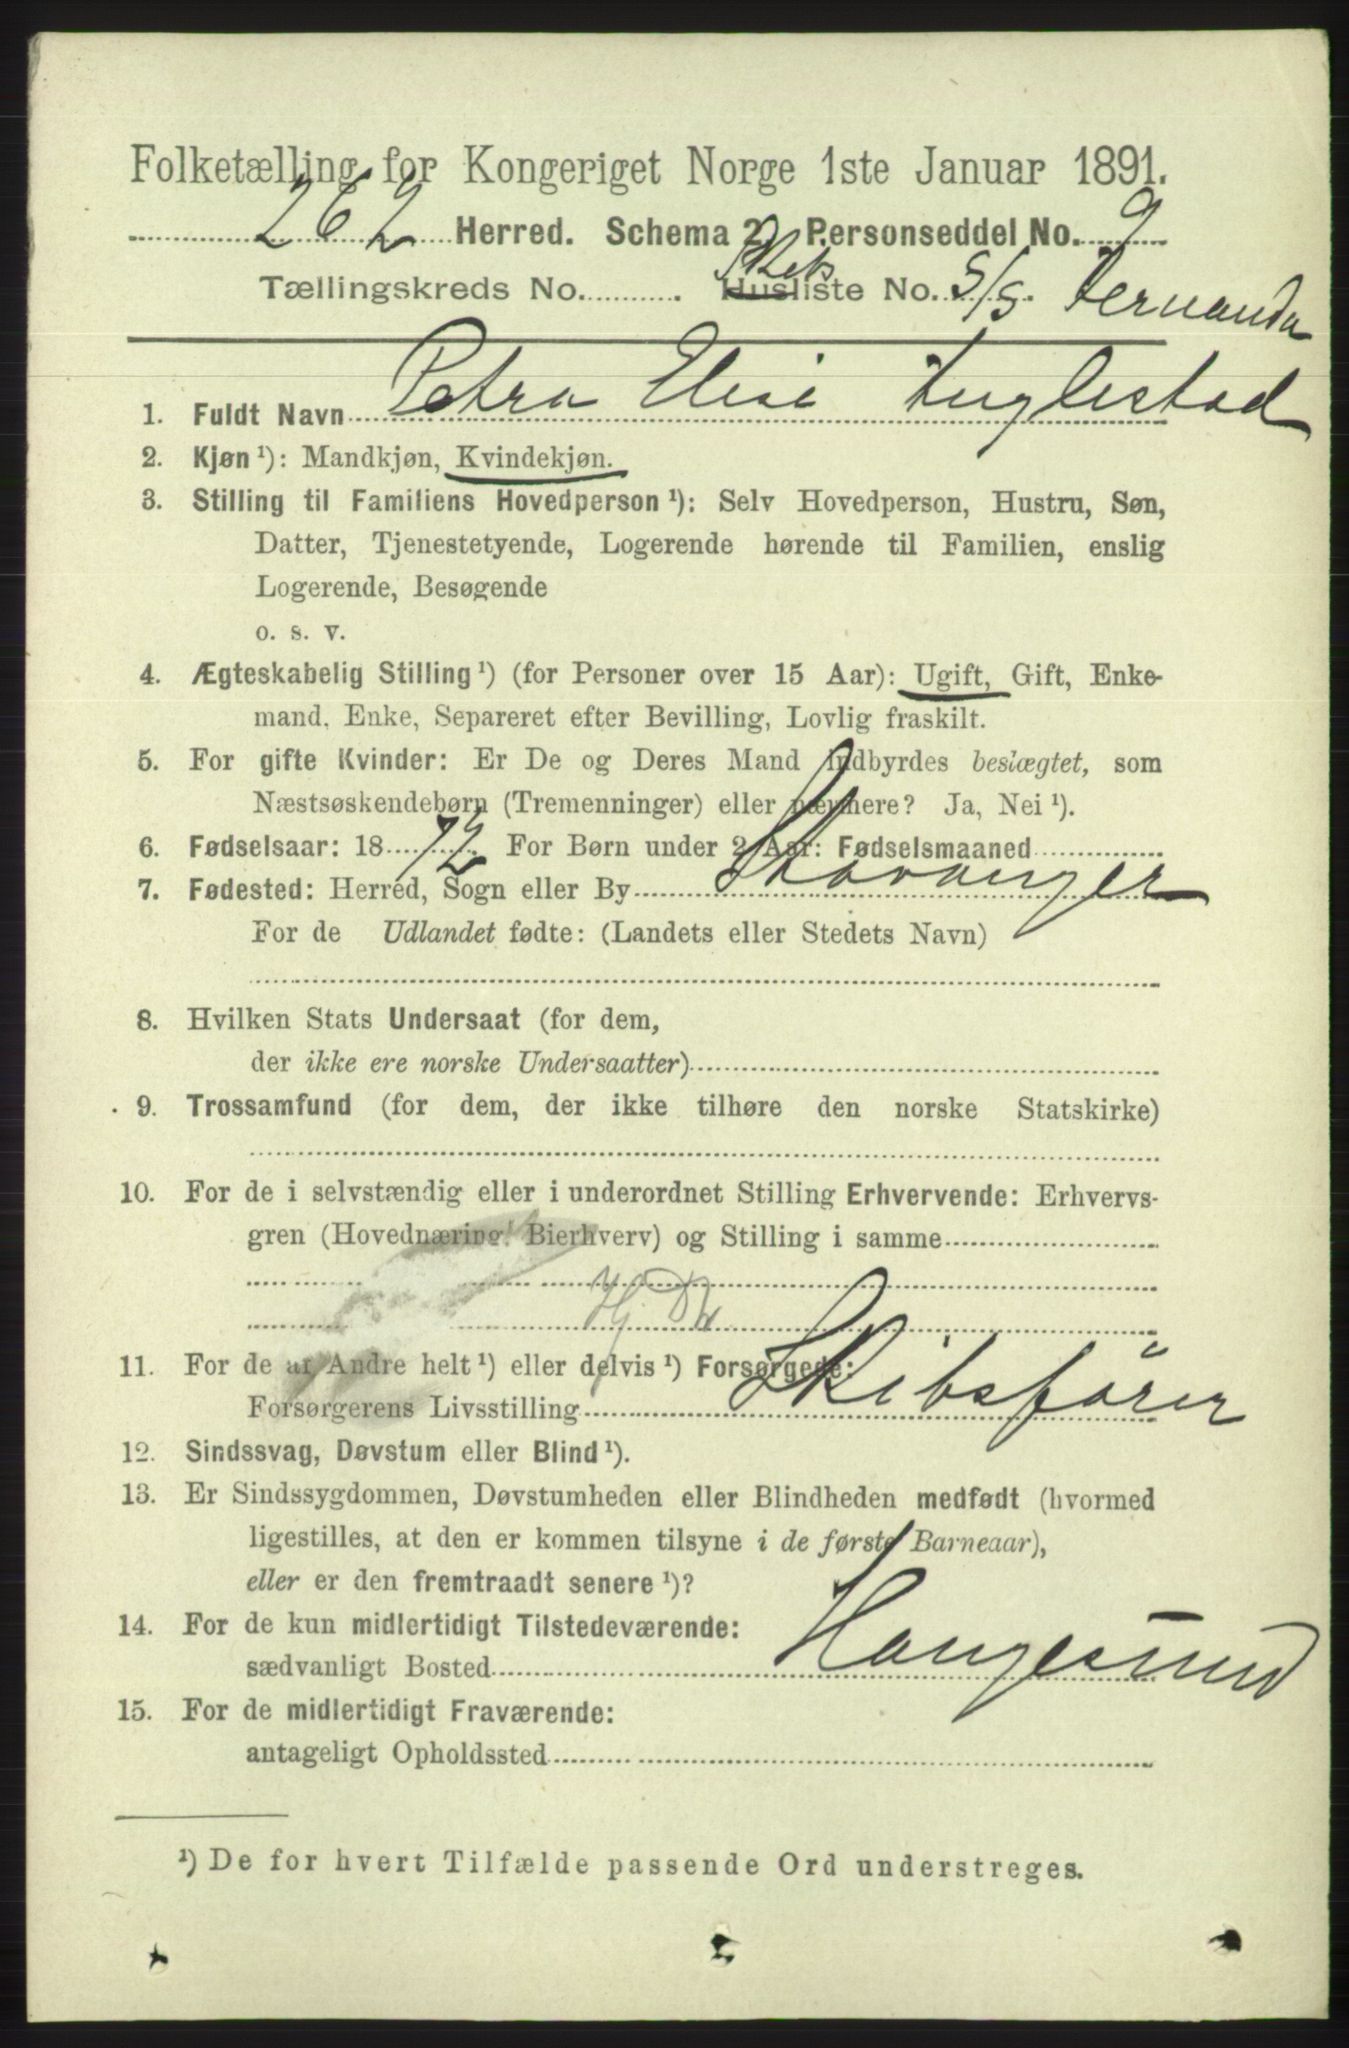 Folketælling for Kongeriget Norge 1ste Januar 1891.
262 Herred. Schema 2. Personseddel No. 9
Tællingskreds No. Skibsliste No. S/S. Fernanda
1. Fuldt Navn Petra Elise Fuglestad
2. Kjøn ¹): Mandkjøn, Kvindekjøn.
3. Stilling til Familiens Hovedperson ¹): Selv Hovedperson, Hustru, Søn,
Datter, Tjenestetyende, Logerende hørende til Familien, enslig
Logerende, Besøgende
o. s. v.
4. Ægteskabelig Stilling ¹) (for Personer over 15 Aar): Ugift, Gift, Enke-
mand, Enke, Separeret efter Bevilling, Lovlig fraskilt.
5. For gifte Kvinder: Er De og Deres Mand indbyrdes beslægtet, som
Næstsøskendebørn (Tremenninger) eller nærmere? Ja, Nei ¹).
6. Fødselsaar: 18 72 For Børn under 2 Aar: Fødselsmaaned
7. Fødested: Herred, Sogn eller By Stavanger
For de Udlandet fødte: (Landets eller Stedets Navn)
8. Hvilken Stats Undersaat (for dem,
der ikke ere norske Undersaatter)
9. Trossamfund (for dem, der ikke tilhøre den norske Statskirke)
10. For de i selvstændig eller i underordnet Stilling Erhvervende: Erhvervs-
gren (Hovednæring, Bierhverv) og Stilling i samme
11. For de af Andre helt ¹) eller delvis ¹) Forsørgede:
Forsørgerens Livsstilling Skibsfører
12. Sindssvag, Døvstum eller Blind ¹).
13. Er Sindssygdommen, Døvstumheden eller Blindheden medfødt (hvormed
ligestilles, at den er kommen tilsyne i de første Barneaar),
eller er den fremtraadt senere ¹)?
14. For de kun midlertidigt Tilstedeværende:
sædvanligt Bosted Haugesund
15. For de midlertidigt Fraværende:
antageligt Opholdssted
¹) De for hvert Tilfælde passende Ord understreges.